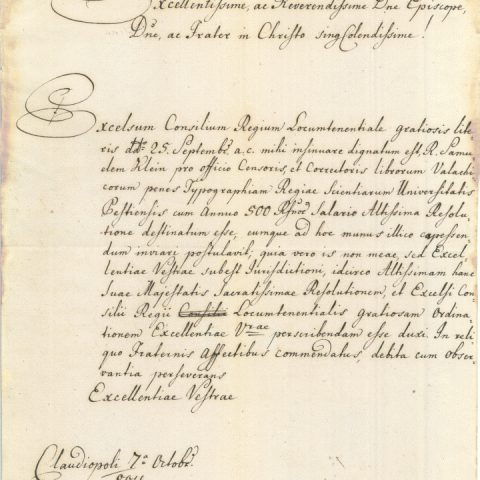 Excellentissime, ac Reverendissime Dne Episcope,
Dne, ac Frater in Christo sing Colendissime!
Excelsum Consilium Regium Locumtenentiale gratiosis lite-
ris ddto 25. Septembr. a.c. mihi insinuare dignatum est, R. Samu-
elem Klein pro officio Censoris, et Correctoris librorum Valachi-
corum penes Typographiam Regiae Scientiarum Universitatis
Pestiensis cum Annuo 500 Salario Altissima Resolu-
tione destinatum esse, eumque ad hoc munus illico capessen-
dum inviari postulavit; quia vero is non meae, sed Excel-
lentiae Vestrae subest Jurisdictioni, idcirco Altissimam hanc
Suae Majestatis Sacratissimae Resolutionem, et Excelsi Con-
silii Regii Consilii Locumtenentialis gratiosam Ordina-
tionem Excellentiae Vrae perscribendam esse duxi. In reli-
quo Fraternis Affectibus commendatus, debita cum obser-
vantia perseverans
Excellentiae Vestrae
Claudiopoli 7a Octobr.